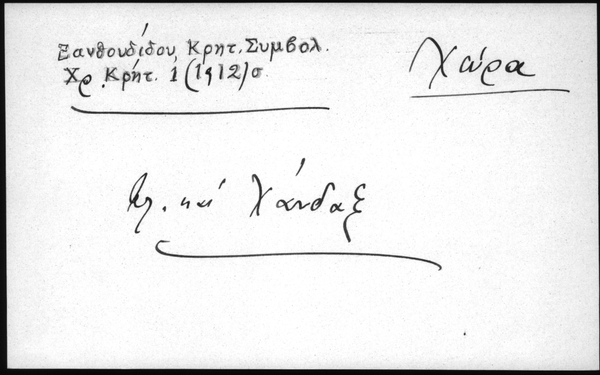 Ξανθουδίδου, Κρητ. Συμβολ.
Χρ. Κρήτ. 1 (1912) σ.
Χώρα
βλ. και Χάνδαξ